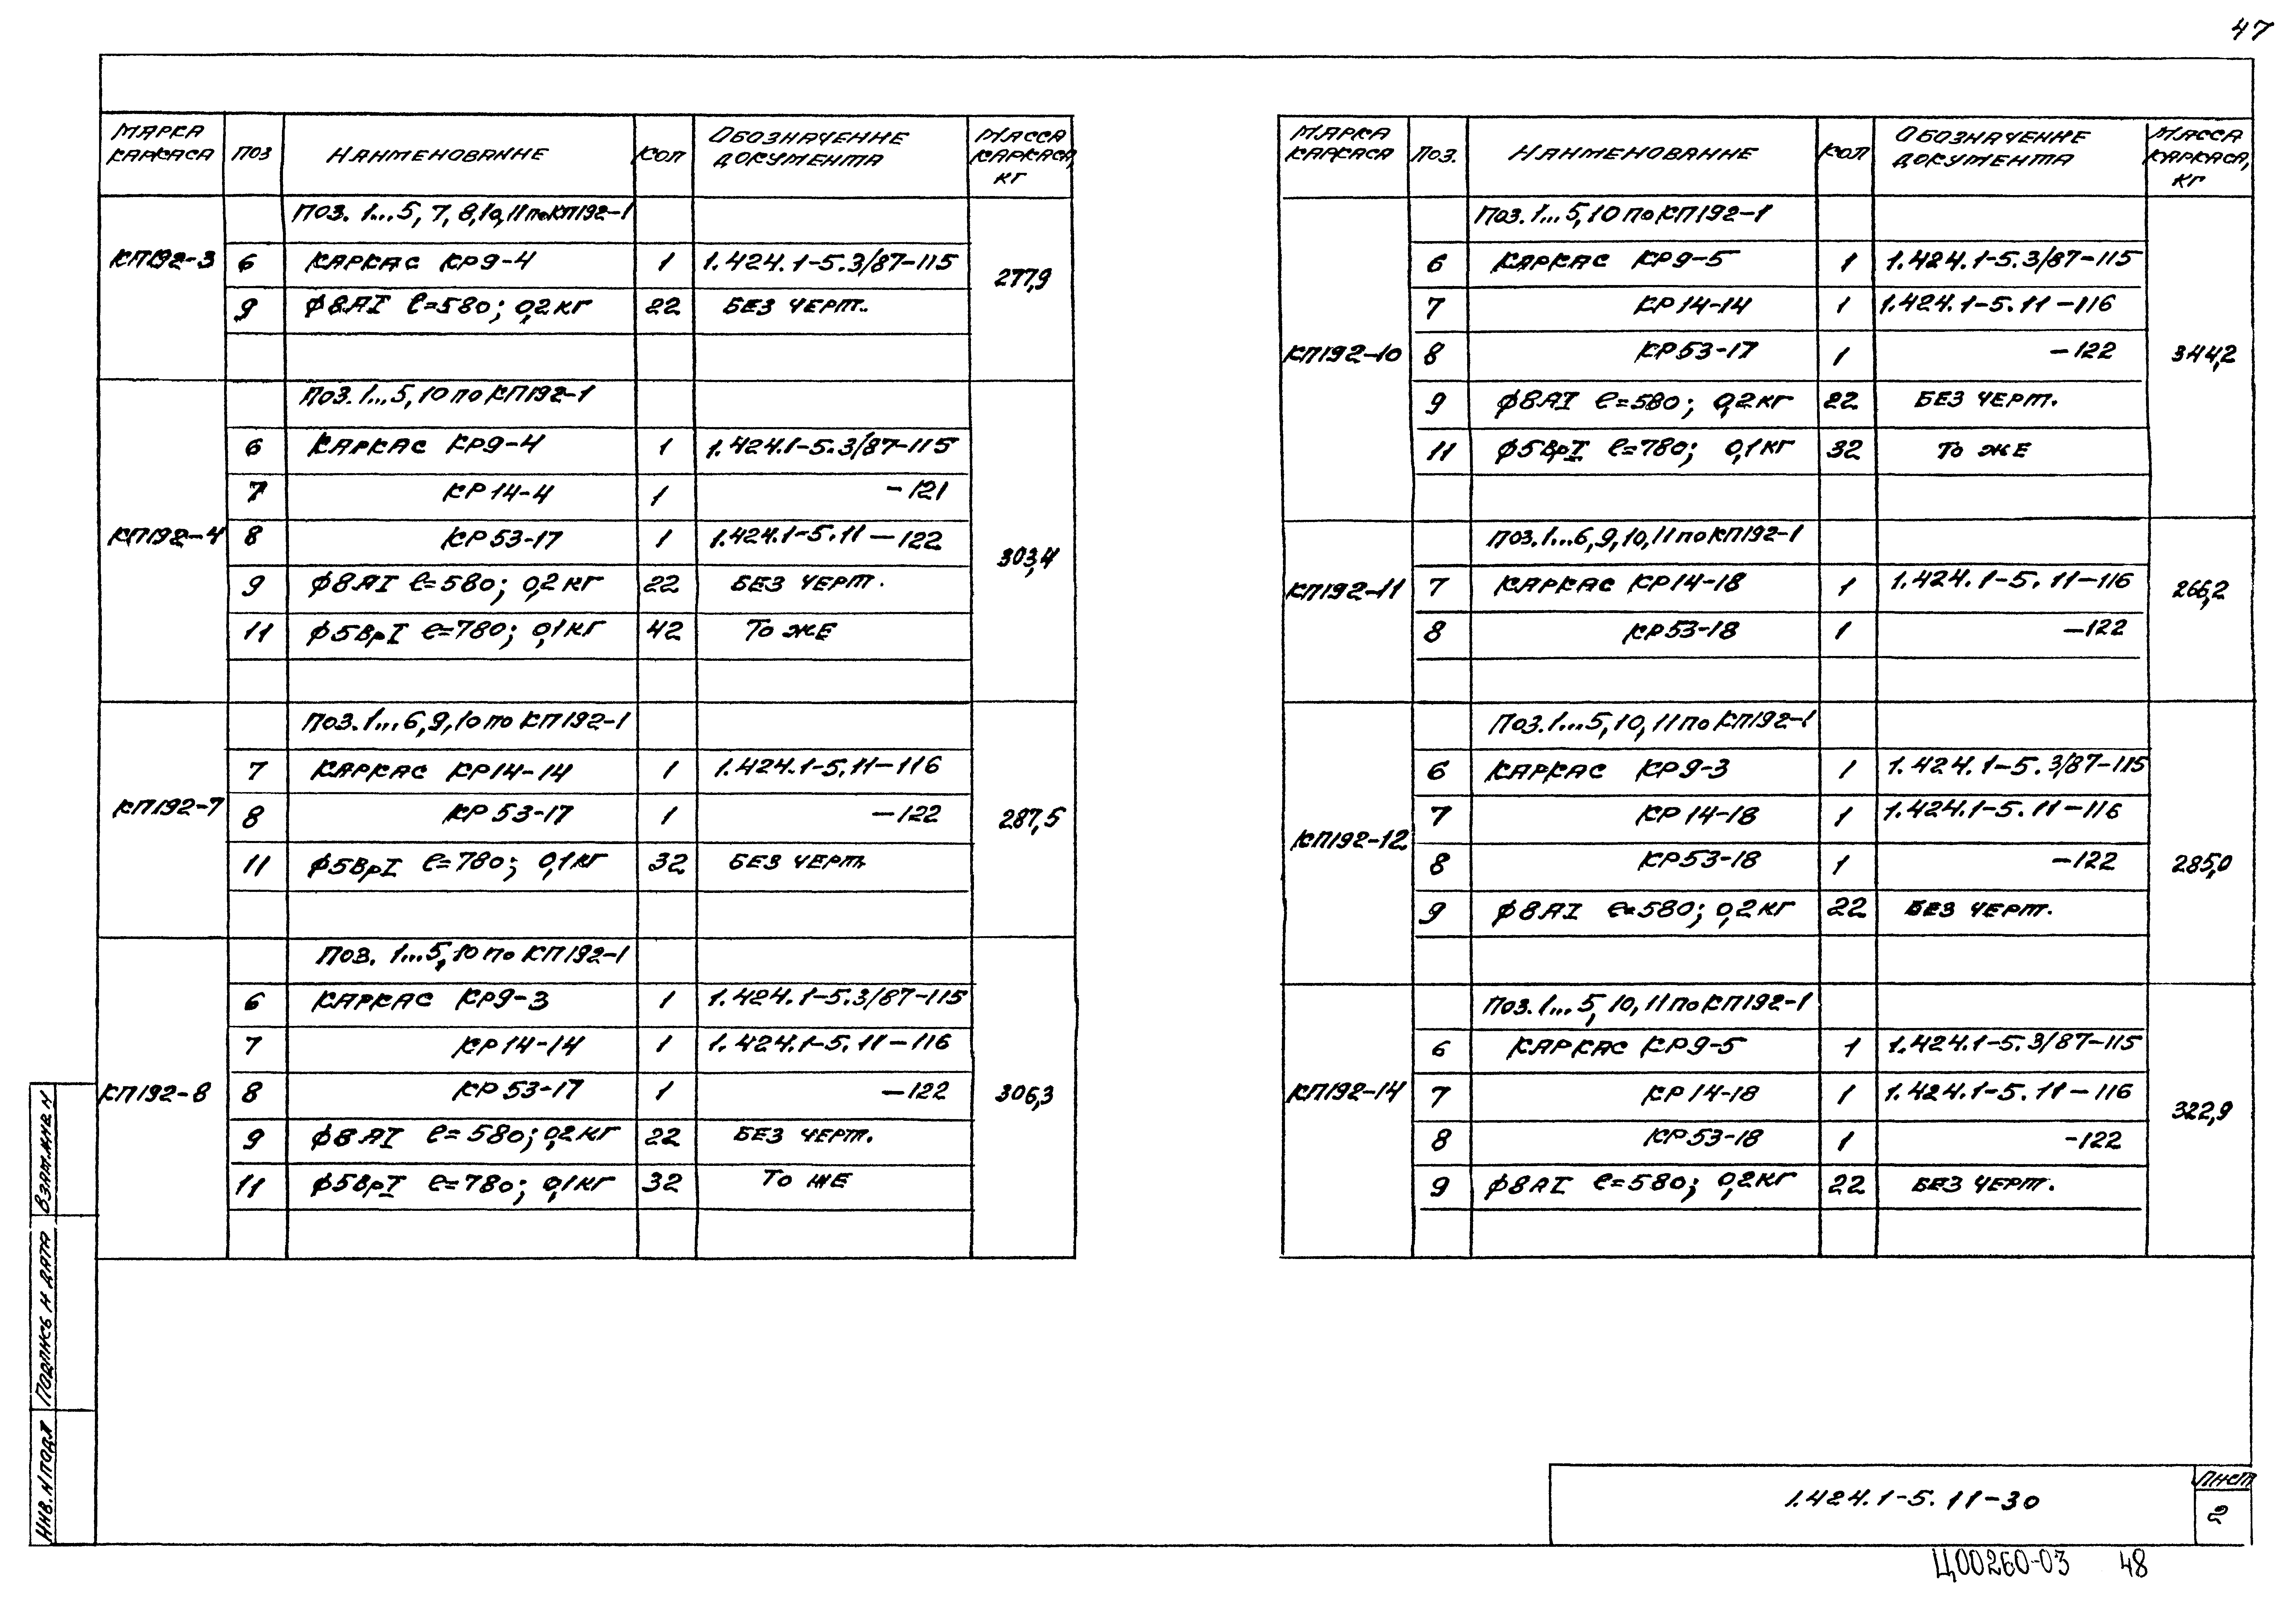 47
МАРКА КАРКАСА ПОЗ НАИМЕНОВАНИЕ КОЛ ОБОЗНАЧЕНИЕ ДОКУМЕНТА МАССА КАРКАСА, КГ
ПОЗ. 1...5, 7, 8, 10, 11 по КП192-1
КП192-3 6 КАРКАС КР9-4 1 1.424.1-5.3/87-115 277,9
9 ф8АI ℓ=580; 0,2 кг 22 БЕЗ ЧЕРТ.
ПОЗ. 1...5, 10 по КП192-1
6 КАРКАС КР9-4 1 1.424.1-5.3/87-115
7 КР14-4 1 -121
КП192-4 8 КР53-17 1 1.424.1-5.11-122 303,4
9 ф8АI ℓ=580; 0,2 кг 22 БЕЗ ЧЕРТ.
11 ф5ВрI ℓ=780; 0,1 кг 42 ТО ЖЕ
ПОЗ. 1...6, 9, 10 по КП192-1
7 КАРКАС КР14-14 1 1.424.1-5.11-116
КП192-7 8 КР53-17 1 -122 287,5
11 ф5ВрI ℓ=780; 0,1 кг 32 БЕЗ ЧЕРТ.
ПОЗ. 1...5, 10 по КП192-1
6 КАРКАС КР9-3 1 1.424.1-5.3/87-115
7 КР14-14 1 1.424.1-5.11-116
КП192-8 8 КР53-17 1 -122 306,3
9 ф8АI ℓ=580; 0,2 кг 22 БЕЗ ЧЕРТ.
11 ф5ВрI ℓ=780; 0,1 кг 32 ТО ЖЕ
МАРКА КАРКАСА ПОЗ. НАИМЕНОВАНИЕ КОЛ ОБОЗНАЧЕНИЕ ДОКУМЕНТА МАССА КАРКАСА, КГ
ПОЗ. 1...5, 10 по КП192-1
6 КАРКАС КР9-5 1 1.424.1-5.3/87-115
7 КР14-14 1 1.424.1-5.11-116
КП192-10 8 КР53-17 1 -122 344,2
9 ф8АI ℓ=580; 0,2 кг 22 БЕЗ ЧЕРТ.
11 ф5ВрI ℓ=780; 0,1 кг 32 ТО ЖЕ
ПОЗ. 1...6, 9, 10, 11 по КП192-1
КП192-11 7 КАРКАС КР14-18 1 1.424.1-5.11-116 266,2
8 КР53-18 1 -122
ПОЗ. 1...5, 10, 11 по КП192-1
6 КАРКАС КР9-3 1 1.424.1-5.3/87-115
7 КР14-18 1 1.424.1-5.11-116
КП192-12 8 КР53-18 1 -122 285,0
9 ф8АI ℓ=580; 0,2 кг 22 БЕЗ ЧЕРТ.
ПОЗ. 1...5, 10, 11 по КП192-1
6 КАРКАС КР9-5 1 1.424.1-5.3/87-115
КП192-14 7 КР14-18 1 1.424.1-5.11-116 322,9
8 КР53-18 1 -122
9 ф8АI ℓ=580; 0,2 кг 22 БЕЗ ЧЕРТ.
ИНВ. N ПОДЛ ПОДПИСЬ И ДАТА ВЗАМ. ИНВ N
1.424.1-5.11-30
ЛИСТ
2
Ц00260-03 48